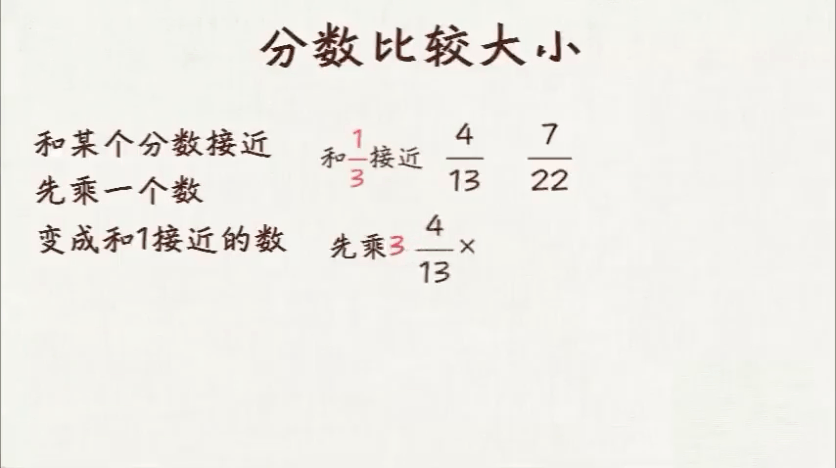 分数比较大小
和某个分数接近
先乘一个数
变成和1接近的数
和1/3接近 4/13 7/22
先乘3 4/13×